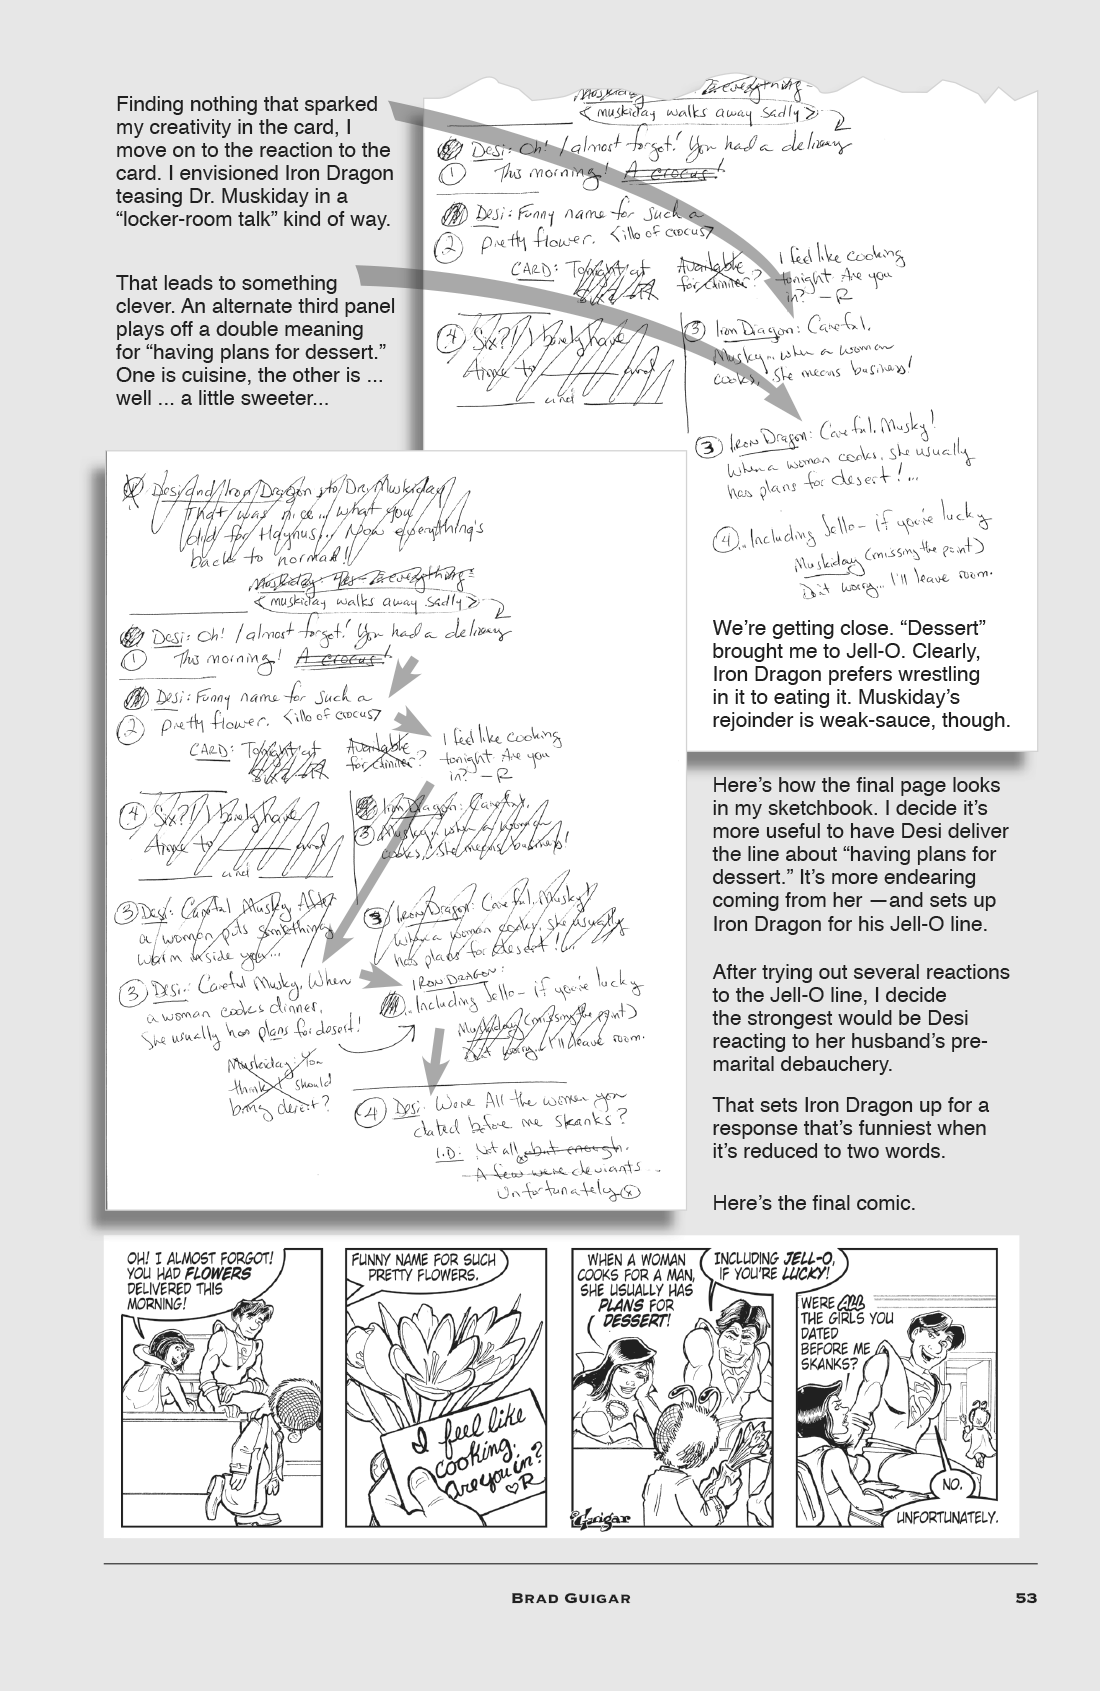 Finding nothing that sparked
my creativity in the card, I
move on to the reaction to the
card. I envisioned Iron Dragon
teasing Dr. Muskiday in a
“locker-room talk” kind of way.
That leads to something
clever. An alternate third panel
plays off a double meaning
for “having plans for dessert.”
One is cuisine, the other is ...
well ... a little sweeter...
<muskiday walks away sadly>
Desi: Oh! I almost forgot! You had a delivery
① This morning! A crocus!
Desi: Funny name for such a
② pretty flower. <illo of crocus>
CARD: Tonight at
Available
for dinner?
I feel like cooking
tonight. Are you
in? – R
④ Six? I barely have
time to ______ and
______ and ______
③ Iron Dragon: Careful,
Musky... when a woman
cooks, she means business!
③ Iron Dragon: Careful, Musky!
When a woman cooks, she usually
has plans for desert!...
④ ...Including Jello – if you're lucky
Muskiday (missing the point)
Don't worry... I'll leave room.
We’re getting close. “Dessert”
brought me to Jell-O. Clearly,
Iron Dragon prefers wrestling
in it to eating it. Muskiday’s
rejoinder is weak-sauce, though.
Desi and Iron Dragon to Dr. Muskiday
That was nice... what you
did for Haynus... Now everything's
back to normal!
Muskiday: Yes – everything
<muskiday walks away sadly>
Desi: Oh! I almost forgot! You had a delivery
① This morning! A crocus!
Desi: Funny name for such a
② pretty flower. <illo of crocus>
CARD: Tonight at
Available
for dinner?
I feel like cooking
tonight. Are you
in? – R
④ Six? I barely have
time to ______ and
______ and ______
Iron Dragon: Careful,
③ Musky... when a woman
cooks, she means business!
③ Desi: Careful Musky After
a woman puts something
warm inside you...
③ Iron Dragon: Careful, Musky!
When a woman cooks, she usually
has plans for desert!...
③ Desi: Careful Musky. When
a woman cooks dinner,
She usually has plans for desert!
IRON DRAGON:
...Including Jello – if you're lucky
Muskiday (missing the point)
Don't worry... I'll leave room.
Muskiday: You
think I should
bring desert?
④ Desi: Were All the women you
dated before me skanks?
I.D: Not all, but enough.
A few were deviants...
Unfortunately
Here’s how the final page looks
in my sketchbook. I decide it’s
more useful to have Desi deliver
the line about “having plans for
dessert.” It’s more endearing
coming from her —and sets up
Iron Dragon for his Jell-O line.
After trying out several reactions
to the Jell-O line, I decide
the strongest would be Desi
reacting to her husband’s pre-
marital debauchery.
That sets Iron Dragon up for a
response that’s funniest when
it’s reduced to two words.
Here’s the final comic.
OH! I ALMOST FORGOT!
YOU HAD FLOWERS
DELIVERED THIS
MORNING!
FUNNY NAME FOR SUCH
PRETTY FLOWERS.
I feel like
cooking.
Are you in?
♡R
WHEN A WOMAN
COOKS FOR A MAN,
SHE USUALLY HAS
PLANS FOR
DESSERT!
INCLUDING JELL-O,
IF YOU'RE LUCKY!
Guigar
WERE ALL
THE GIRLS YOU
DATED
BEFORE ME
SKANKS?
NO.
UNFORTUNATELY.
BRAD GUIGAR
53